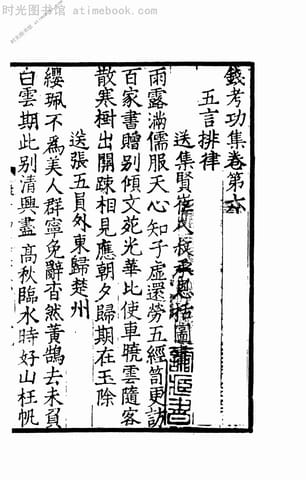 时光图书馆 atimebook.com
錢考功集卷第六
五言排律
送集賢崔八叔承恩括圖書
雨露滿儒服天心知子虛還勞五經笥更訪
百家書贈別傾文苑光華比使車曉雲隨客
散寒樹出關踈相見應朝夕歸期在玉除
送張五員外東歸楚州
纓珮不爲美人群寧免辭杳然黃鵠去未負
白雲期此别清興盡高秋臨水時好山枉帆